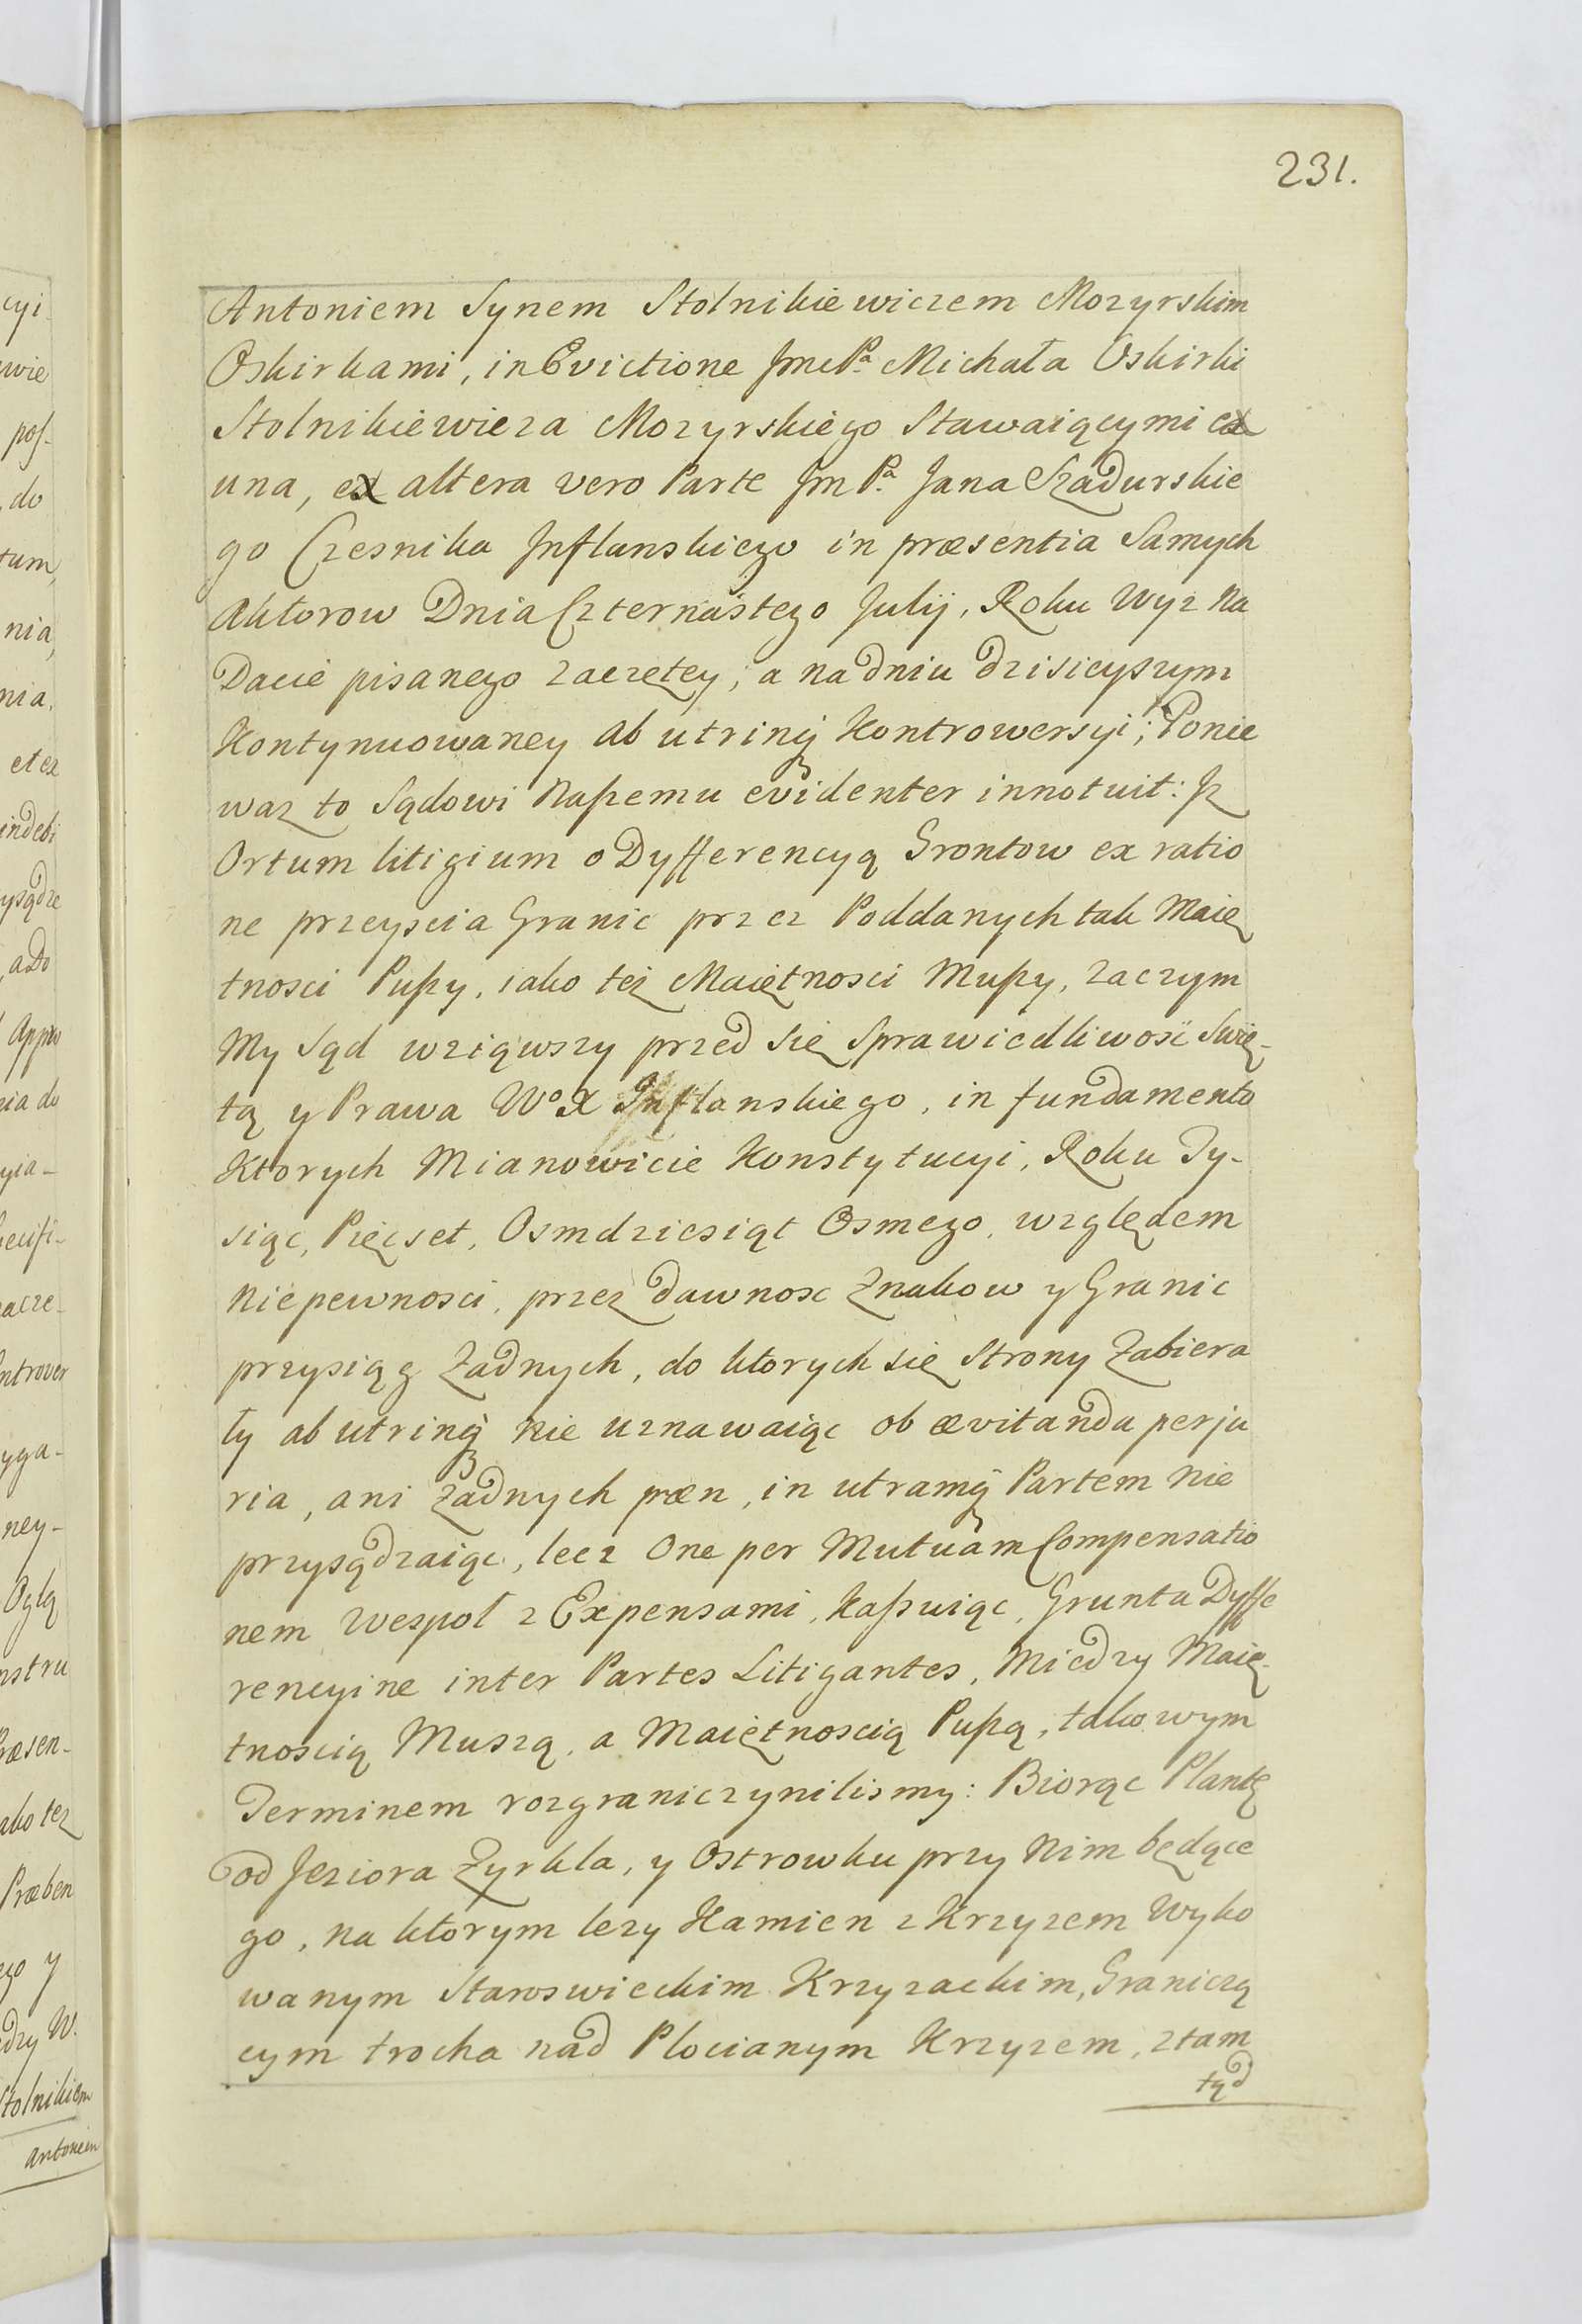 231.
Antoniem Synem Stolnikiewiczem Mozyrskim
Oskirkami, in Evictione JmcPa Michała Oskirki
Stolnikiewicza Mozyrskiego Stawaiącymi ex
una, ex altera vero Parte Jm Pa Jana Szadurskie
go Czesnika Jnflanskiego in præsentia Samych
Aktorow Dnia Czternástego Julij, Roku Wyz na
Dacie pisanego zaczętey; a na dniu dzisieyszym
Kontynuowaney ab utrinq Kontrowersyi; Ponie
waz to Sądowi Naszemu evidenter innotuit: Jz
Ortum litigium o Dyfferencyą Grontow ex ratio
ne przeyscia Granic przez Poddanych tak Maię
tnosci Puszy, iako tez Maiętnosci Muszy, zaczym
My Sąd wziąwszy przed się Sprawiedliwość Swię-
tą y Prawa Wo X Jnflanskiego, in fundamento
Ktorych Mianowicie Konstytucyi, Roku Ty-
siąc, Pięcset, Osmdziesiąt Osmego, względem
Niepewnosci, przez dawnosc Znakow y Granic
przysiąg Zadnych, do ktorych się Strony Zabiera
ły ab utrinq nie uznawaiąc ob ævitanda perju
ria, ani żadnych pæn, in utramq Partem Nie
przysądzaiąc, lecz One per Mutuam Compensatio
nem Wespoł z Expensami, Kaszuiąc, Grunta Dyffe
rencyine inter Partes Litigantes, Miedzy Maię-
tnoscią Muszą, a Maiętnoscią Puszą, takowym
Terminem rozgraniczynilismy: Biorąc Plantę
od Jeziora Zyrkla, y Ostrowku przy Nim będące
go, na ktorym lezy Kamien z Krzyzem Wyko
wanym Staroswieckim Krzyzackim, Graniczą
cym trocha nad Plocianym Krzyzem, ztam
tąd